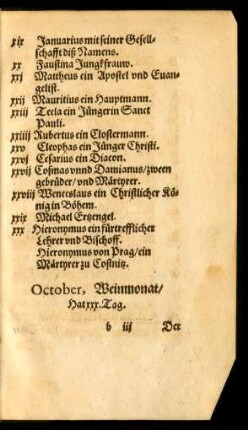 xix Januarius mit seiner Gesell-
schafft diß Namens.
xx Faustina Jungkfrauw.
xxj Mattheus ein Apostel vnd Euan-
gelist.
xxij Mauritius ein Hauptmann.
xxiij Tecla ein Jüngerin Sanct
Pauli.
xxiiij Rubertus ein Clostermann.
xxv Cleophas ein Jünger Christi.
xxvj Cesarius ein Diacon.
xxvij Cosmas vnnd Damianus/zween
gebrüder/vnd Märtyrer.
xxviij Wenceslaus ein Christlicher Kö-
nig in Böhem.
xxix Michael Ertzengel.
xxx Hieronymus ein fürtrefflicher
Lehrer vnd Bischoff.
Hieronymus von Prag/ein
Märtyrer zu Costnitz.
October, Weinmonat/
Hat xxx. Tag.
b iij Der